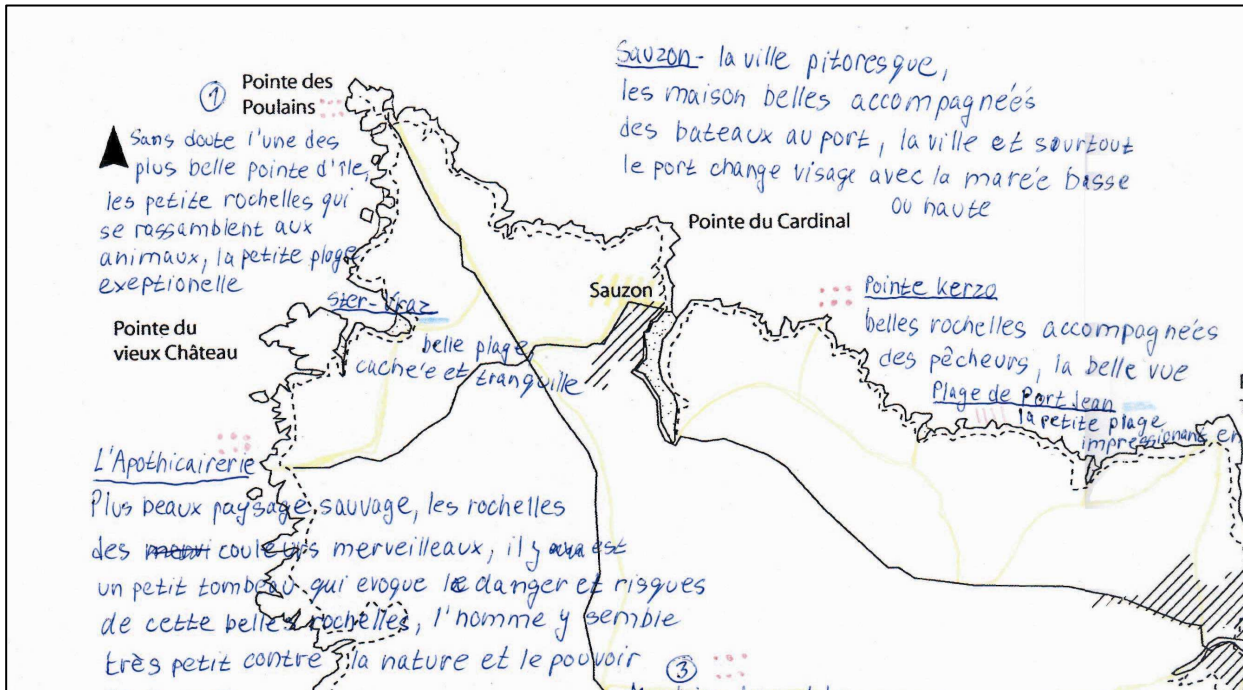 ① Pointe des
Poulains
Sans doute l'une des
plus belle pointe d'île,
les petite rochelles qui
se rassamblent aux
animaux, la petite plage
exeptionelle
Sauzon - la ville pitoresque,
les maison belles accompagneés
des bateaux au port, la ville et sourtout
le port change visage avec la marée basse
ou haute
Pointe du Cardinal
Sauzon
Pointe kerzo
belles rochelles accompagnées
des pêcheurs, la belle vue
Plage de Port Jean
la petite plage
impressionant en
Ster-Vraz
belle plage
cachée et tranquille
Pointe du
vieux Château
L'Apothicairerie
Plus beaux paysage sauvage, les rochelles
des couleurs merveilleaux, il y est
un petit tombeau qui evoque le danger et risques
de cette belles rochelles, l'homme y semble
très petit contre la nature et le pouvoir
③